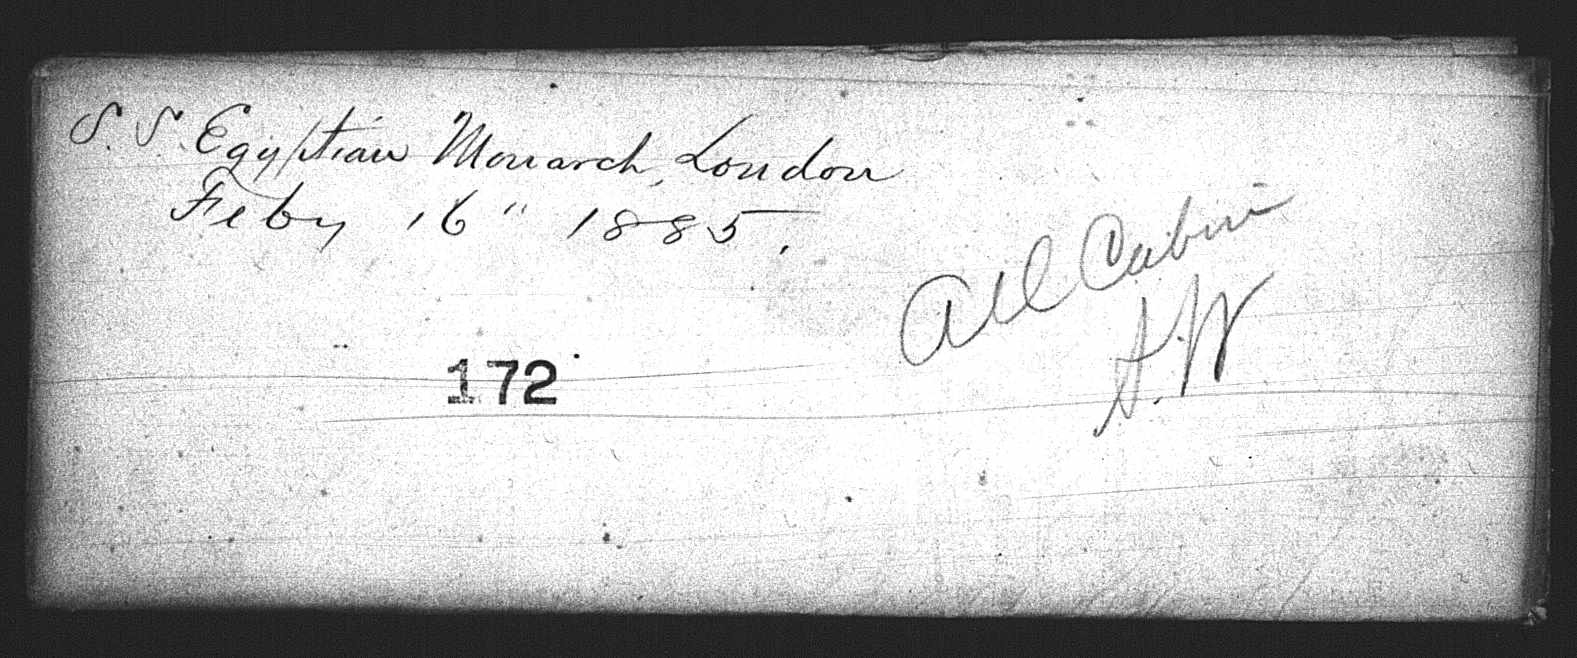 S. S. Egyptian Monarch, London
Feby 16" 1885.
All Cabin
172